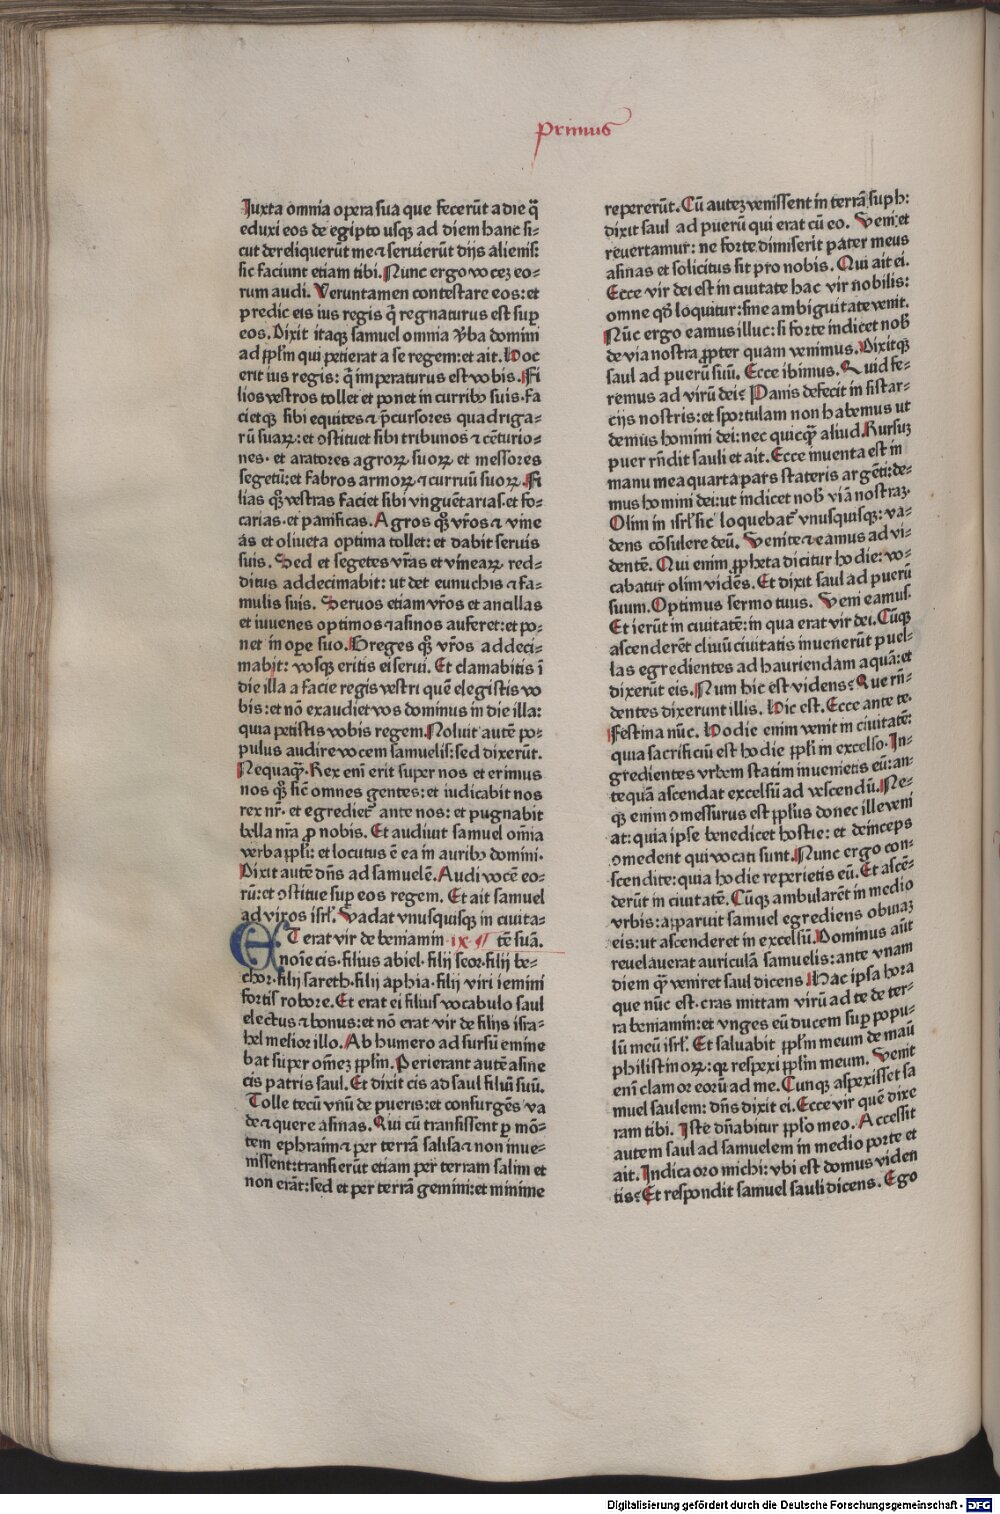 Primus
Iuxta omnia opera sua que fecerūt a die q̄
eduxi eos de egipto usqꝫ ad diem hanc si-
cut dereliquerūt me ⁊ seruierūt dijs alienis:
sic faciunt etiam tibi. Nunc ergo vocez eo-
rum audi. Veruntamen contestare eos: et
predic eis ius regis q̄ regnaturus est sup̲
eos. Dixit itaqꝫ samuel omnia v̄ba domini
ad ꝓplm̄ qui petierat a se regem: et ait. Hoc
erit ius regis: q̄ imperaturus est vobis. Fi
lios vestros tollet et ponet in curribꝰ suis. fa
cietqꝫ sibi equites ⁊ p̄cursores quadriga-
rū suaꝝ: et ꝯstituet sibi tribunos ⁊ cēturio-
nes. et aratores agroꝝ suoꝝ et messores
segetū: et fabros armoꝝ ⁊ curruū suoꝝ. Fi
lias qꝫ vestras faciet sibi vnguētarias. et fo-
carias. et panificas. Agros qꝫ vr̄os ⁊ vine
as et oliueta optima tollet: et dabit seruis
suis. Sed et segetes vr̄as et vineaꝝ red-
ditus addecimabit: ut det eunuchis ⁊ fa-
mulis suis. Seruos etiam vr̄os et ancillas
et iuuenes optimos ⁊ asinos auferet: et po-
net in ope suo. Greges qꝫ vr̄os addeci-
mabit: vosqꝫ eritis ei serui. Et clamabitis ī
die illa a facie regis vestri quē elegistis vo
bis: et nō exaudiet vos dominus in die illa:
quia petistis vobis regem. Noluit autē po-
pulus audire vocem samuelis: sed dixerūt.
Nequaqꝫ. Rex eni̅ erit super nos et erimus
nos qꝫ sic̄ omnes gentes: et iudicabit nos
rex nr̄. et egrediet᷑ ante nos: et pugnabit
bella nr̄a ꝓ nobis. Et audiuit samuel om̄ia
verba ꝓpli: et locutus ē ea in auribꝰ domini.
Dixit autē dn̄s ad samuelē. Audi vocē eo-
rū: et ꝯstitue sup̲ eos regem. Et ait samuel
ad viros isrl̄. Vadat vnusquisqꝫ in ciuita-
ET erat vir de beniamin ix ¶ tē suā.
noīe cis. filius abiel. filij seor. filij be-
chor. filij sareth. filij aphia. filij viri iemini
fortis robore. Et erat ei filius vocabulo saul
electus ⁊ bonus: et nō erat vir de filijs isra-
hel melior illo. Ab humero ad sursū emine
bat super om̄ez ꝓplm̄. Perierant autē asine
cis patris saul. Et dixit cis ad saul filiū suū.
Tolle tecū vnū de pueris: et consurgēs va
de ⁊ quere asinas. Qui cū transissent p̲ mō-
tem ephraim ⁊ per terrā salisa ⁊ non inue-
nissent: transierūt etiam per terram salim et
non erāt: sed et per terrā gemini: et minime
repererūt. Cū autez venissent in terrā suph:
dixit saul ad puerū qui erat cū eo. Veni et
reuertamur: ne forte dimiserit pater meus
asinas et solicitus sit pro nobis. Qui ait ei.
Ecce vir dei est in ciuitate hac vir nobilis:
omne qd̄ loquitur: sine ambiguitate venit.
Nūc ergo eamus illuc: si forte indicet nobꝭ
de via nostra ꝓpter quam venimus. Dixitqꝫ
saul ad puerū suū. Ecce ibimus. Quid fe-
remus ad virū dei? Panis defecit in sistar-
cijs nostris: et sportulam non habemus ut
demus homini dei: nec quicqꝫ aliud. Rursuz
puer rn̄dit sauli et ait. Ecce inuenta est in
manu mea quarta pars stateris argēti: de-
mus homini dei: ut indicet nobꝭ viā nostraz.
Olim in isrl̄ sic loquebat᷑ vnusquisqꝫ: va-
dens cōsulere deū. Venite ⁊ eamus ad vi-
dentē. Qui enim ꝓpheta dicitur hodie: vo-
cabatur olim vidēs. Et dixit saul ad puerū
suum. Optimus sermo tuus. Veni eamus.
Et ierūt in ciuitatē: in qua erat vir dei. Cūqꝫ
ascenderēt cliuū ciuitatis inuenerūt puel-
las egredientes ad hauriendam aquā: et
dixerūt eis. Num hic est videns? Que rn̄-
dentes dixerunt illis. Hic est. Ecce ante te.
Festina nūc. Hodie enim venit in ciuitatē:
quia sacrificiū est hodie ꝓpli in excelso. In-
gredientes vrbem statim inuenietis eū: an-
tequā ascendat excelsū ad vescendū. Ne-
qꝫ enim ꝯmessurus est ꝓplus donec ille veni
at: quia ipse benedicet hostie: et deinceps
ꝯmedent qui vocati sunt. Nunc ergo con-
scendite: quia hodie reperietis eū. Et ascē-
derūt in ciuitatē. Cūqꝫ ambularēt in medio
vrbis: apparuit samuel egrediens obuiaz
eis: ut ascenderet in excelsū. Dominus aūt
reuelauerat auriculā samuelis: ante vnam
diem qꝫ veniret saul dicens. Hac ipsa hora
que nūc est. cras mittam virū ad te de ter-
ra beniamin: et vnges eū ducem sup̲ popu-
lū meū isrl̄. Et saluabit ꝓplm̄ meum de maū
philistinoꝝ: qꝛ respexi ꝓplm̄ meum. Venit
eni̅ clamor eorū ad me. Cunqꝫ aspexisset sa
muel saulem: dn̄s dixit ei. Ecce vir quē dixe
ram tibi. Iste dn̄abitur ꝓplo meo. Accessit
autem saul ad samuelem in medio porte et
ait. Indica oro michi: vbi est domus viden
tis? Et respondit samuel sauli dicens. Ego
Digitalisierung gefördert durch die Deutsche Forschungsgemeinschaft - DFG